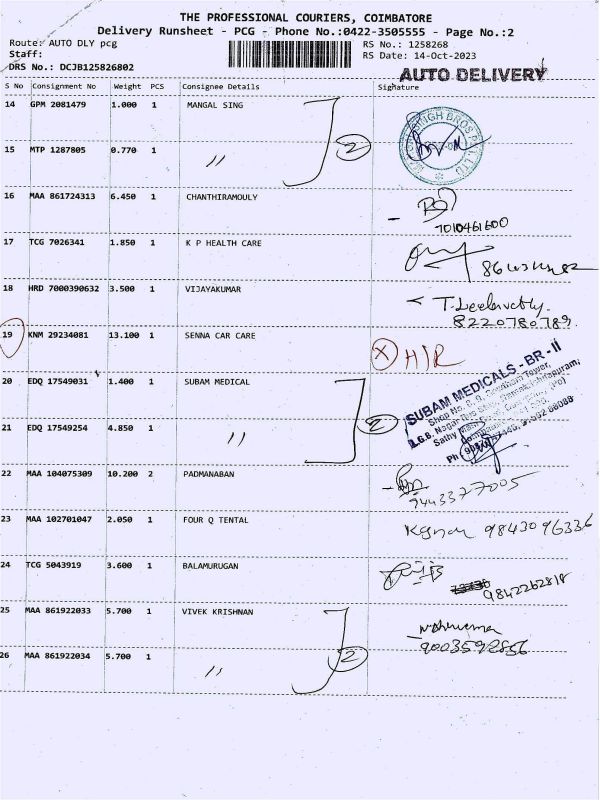 THE PROFESSIONAL COURIERS, COIMBATORE
Delivery Runsheet - PCG - Phone No.:0422-3505555 - Page No.:2
Route: AUTO DLY pcg
RS No.: 1258268
Staff:
RS Date: 14-Oct-2023
DRS No.: DCJB125826802
AUTO DELIVERY
S No Consignment No Weight PCS Consignee Details Signature
14 GPM 2081479 1.000 1 MANGAL SING
2
15 MTP 1287805 0.770 1 "
16 MAA 861724313 6.450 1 CHANTHIRAMOULY
7010461600
17 TCG 7026341 1.850 1 K P HEALTH CARE
18 HRD 7000390632 3.500 1 VIJAYAKUMAR
8220780789
19 KNM 29234081 13.100 1 SENNA CAR CARE
X H/R
20 EDQ 17549031 1.400 1 SUBAM MEDICAL
SUBAM MEDICALS - BR - II
2
21 EDQ 17549254 4.850 1 "
22 MAA 104075309 10.200 2 PADMANABAN
9443377005
23 MAA 102701047 2.050 1 FOUR Q TENTAL
9843096336
24 TCG 5043919 3.600 1 BALAMURUGAN
9842262818
25 MAA 861922033 5.700 1 VIVEK KRISHNAN
9003592856
2
26 MAA 861922034 5.700 1 "